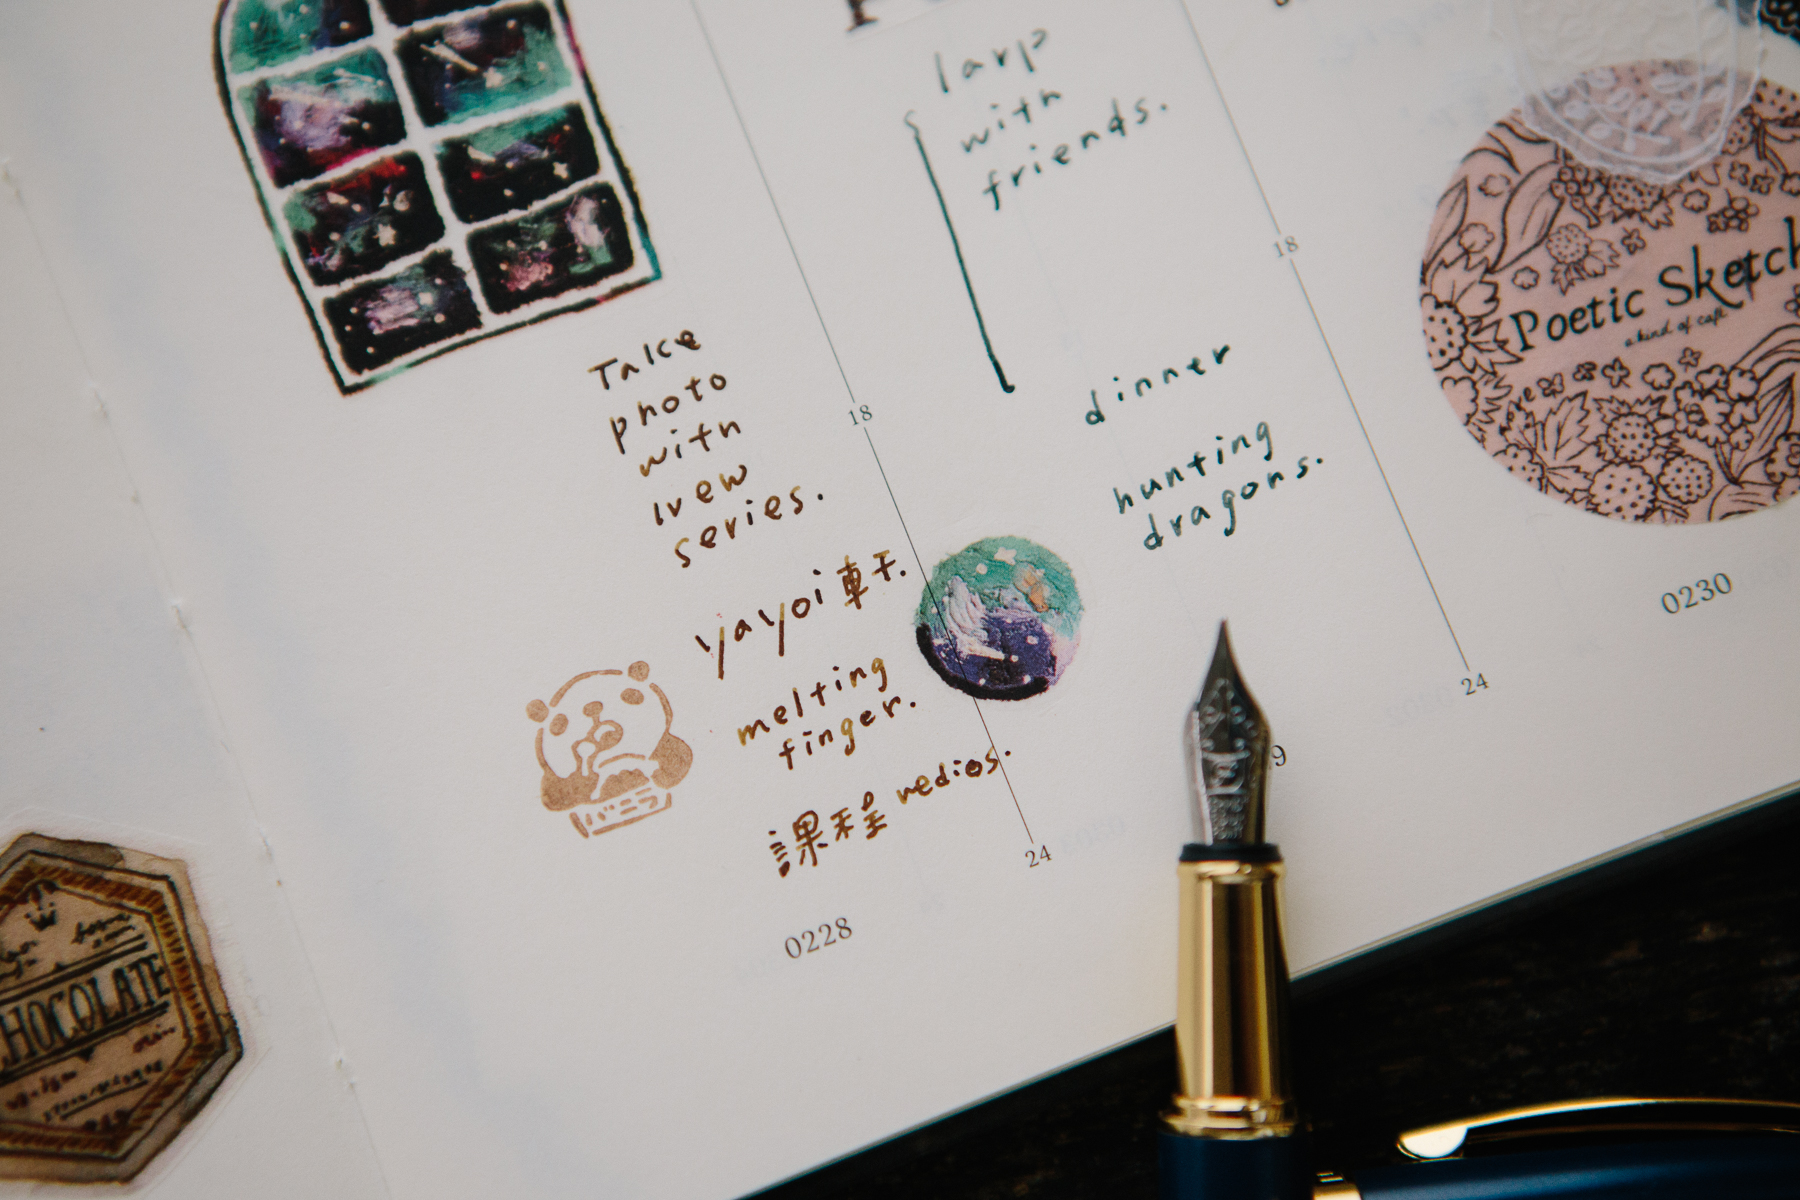 Take
photo
with
new
series.
yayoi軒.
melting
finger.
課程 redios.
バニラ
18
24
0228
larp
with
friends.
dinner
hunting
dragons.
18
24
9
0230
Poetic Sketch
a kind of cafe
HOCOLATE